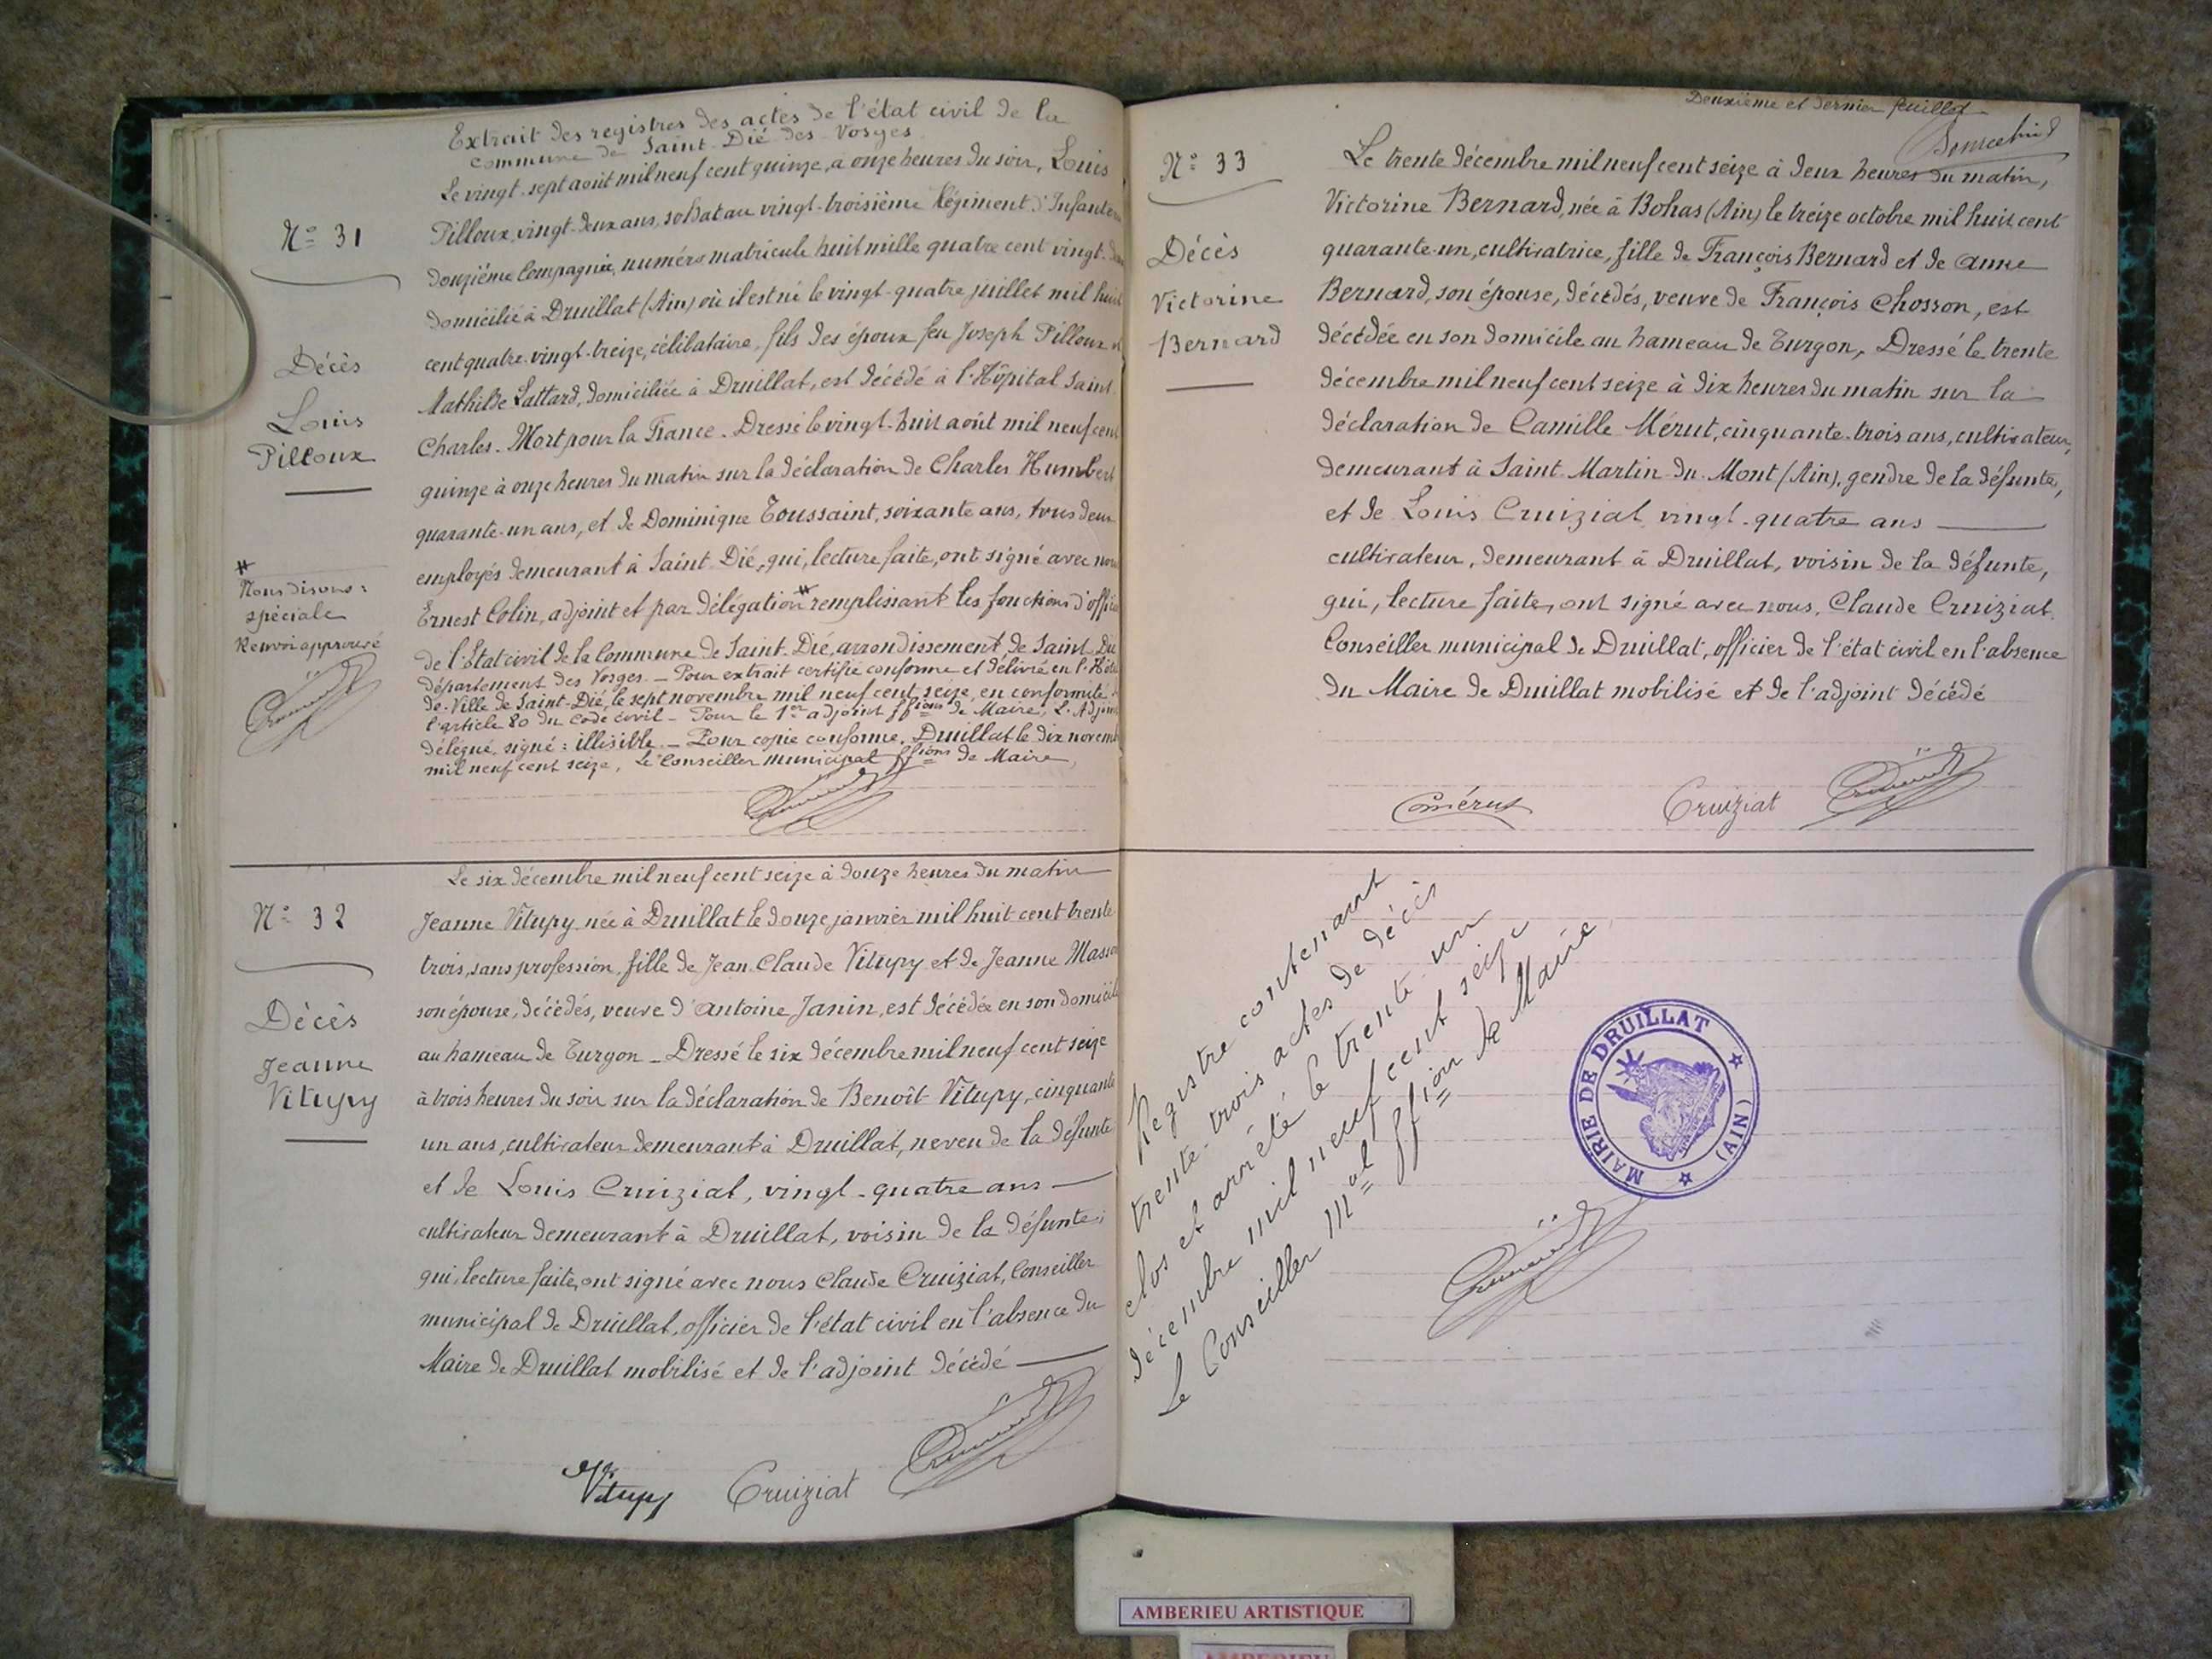 Extrait des registres des actes de l'état civil de la
commune de Saint-Dié des Vosges
Le vingt-sept août mil neuf cent quinze, à onze heures du soir, Louis
Pilloux, vingt-deux ans, soldat au vingt-troisième Régiment d'Infanterie
douzième Compagnie, numéro matricule huit mille quatre cent vingt-
domicilié à Druillat (Ain) où il est né le vingt-quatre juillet mil huit
cent quatre-vingt-treize, célibataire, fils des époux feu Joseph Pilloux et
Mathilde Lattard, domiciliée à Druillat, est décédé à l'Hôpital Saint
Charles. Mort pour la France. Dressé le vingt-huit août mil neuf cent
quinze à onze heures du matin sur la déclaration de Charles Humbert
quarante-un ans, et de Dominique Toussaint, soixante ans, tous deux
employés demeurant à Saint-Dié, qui, lecture faite, ont signé avec nous
Ernest Colin, adjoint et par délégation # remplissant les fonctions d'officier
de l'État civil de la Commune de Saint-Dié, arrondissement de Saint-Dié
département des Vosges. — Pour extrait certifié conforme et délivré en l'Hôtel
de-Ville de Saint-Dié, le sept novembre mil neuf cent seize, en conformité
l'article 80 du code civil — Pour le 1er adjoint ffions de Maire, L'Adjoint
délégué, signé : illisible — Pour copie conforme, Druillat le dix novembre
mil neuf cent seize, Le Conseiller municipal ffions de Maire,
N° 31
Décès
Louis
Pilloux
#
Nous disons :
spéciale
Renvoi approuvé
Le six décembre mil neuf cent seize à douze heures du matin
Jeanne Vitupy née à Druillat le douze janvier mil huit cent trente
trois, sans profession, fille de Jean Claude Vitupy et de Jeanne Masson
son épouse, décédés, veuve d'Antoine Janin, est décédée en son domicile
au hameau de Turgon — Dressé le six décembre mil neuf cent seize
à trois heures du soir sur la déclaration de Benoît Vitupy, cinquante
un ans, cultivateur demeurant à Druillat, neveu de la défunte
et de Louis Cruiziat, vingt-quatre ans —
cultivateur demeurant à Druillat, voisin de la défunte,
qui, lecture faite, ont signé avec nous Claude Cruiziat, Conseiller
municipal de Druillat, officier de l'état civil en l'absence du
Maire de Druillat mobilisé et de l'adjoint décédé —
N° 32
Décès
Jeanne
Vitupy
Vitupy Cruiziat
Deuxième et dernier feuillet
Le trente décembre mil neuf cent seize à deux heures du matin,
Victorine Bernard, née à Bohas (Ain) le treize octobre mil huit cent
quarante-un, cultivatrice, fille de François Bernard et de Anne
Bernard, son épouse, décédés, veuve de François Chosson, est
décédée en son domicile au hameau de Turgon, Dressé le trente
décembre mil neuf cent seize à dix heures du matin sur la
déclaration de Camille Mérut, cinquante-trois ans, cultivateur,
demeurant à Saint-Martin-du-Mont (Ain), gendre de la défunte,
et de Louis Cruiziat, vingt-quatre ans —
cultivateur, demeurant à Druillat, voisin de la défunte,
qui, lecture faite, ont signé avec nous, Claude Cruiziat
Conseiller municipal de Druillat, officier de l'état civil en l'absence
du Maire de Druillat mobilisé et de l'adjoint décédé
N° 33
Décès
Victorine
Bernard
Cmérut Cruiziat
Registre contenant
trente-trois actes de décès
clos et arrêté le trente-un
décembre mil neuf cent seize
Le Conseiller mal ffion de Maire
MAIRIE DE DRUILLAT
(AIN)
AMBERIEU ARTISTIQUE
AMBERIEU